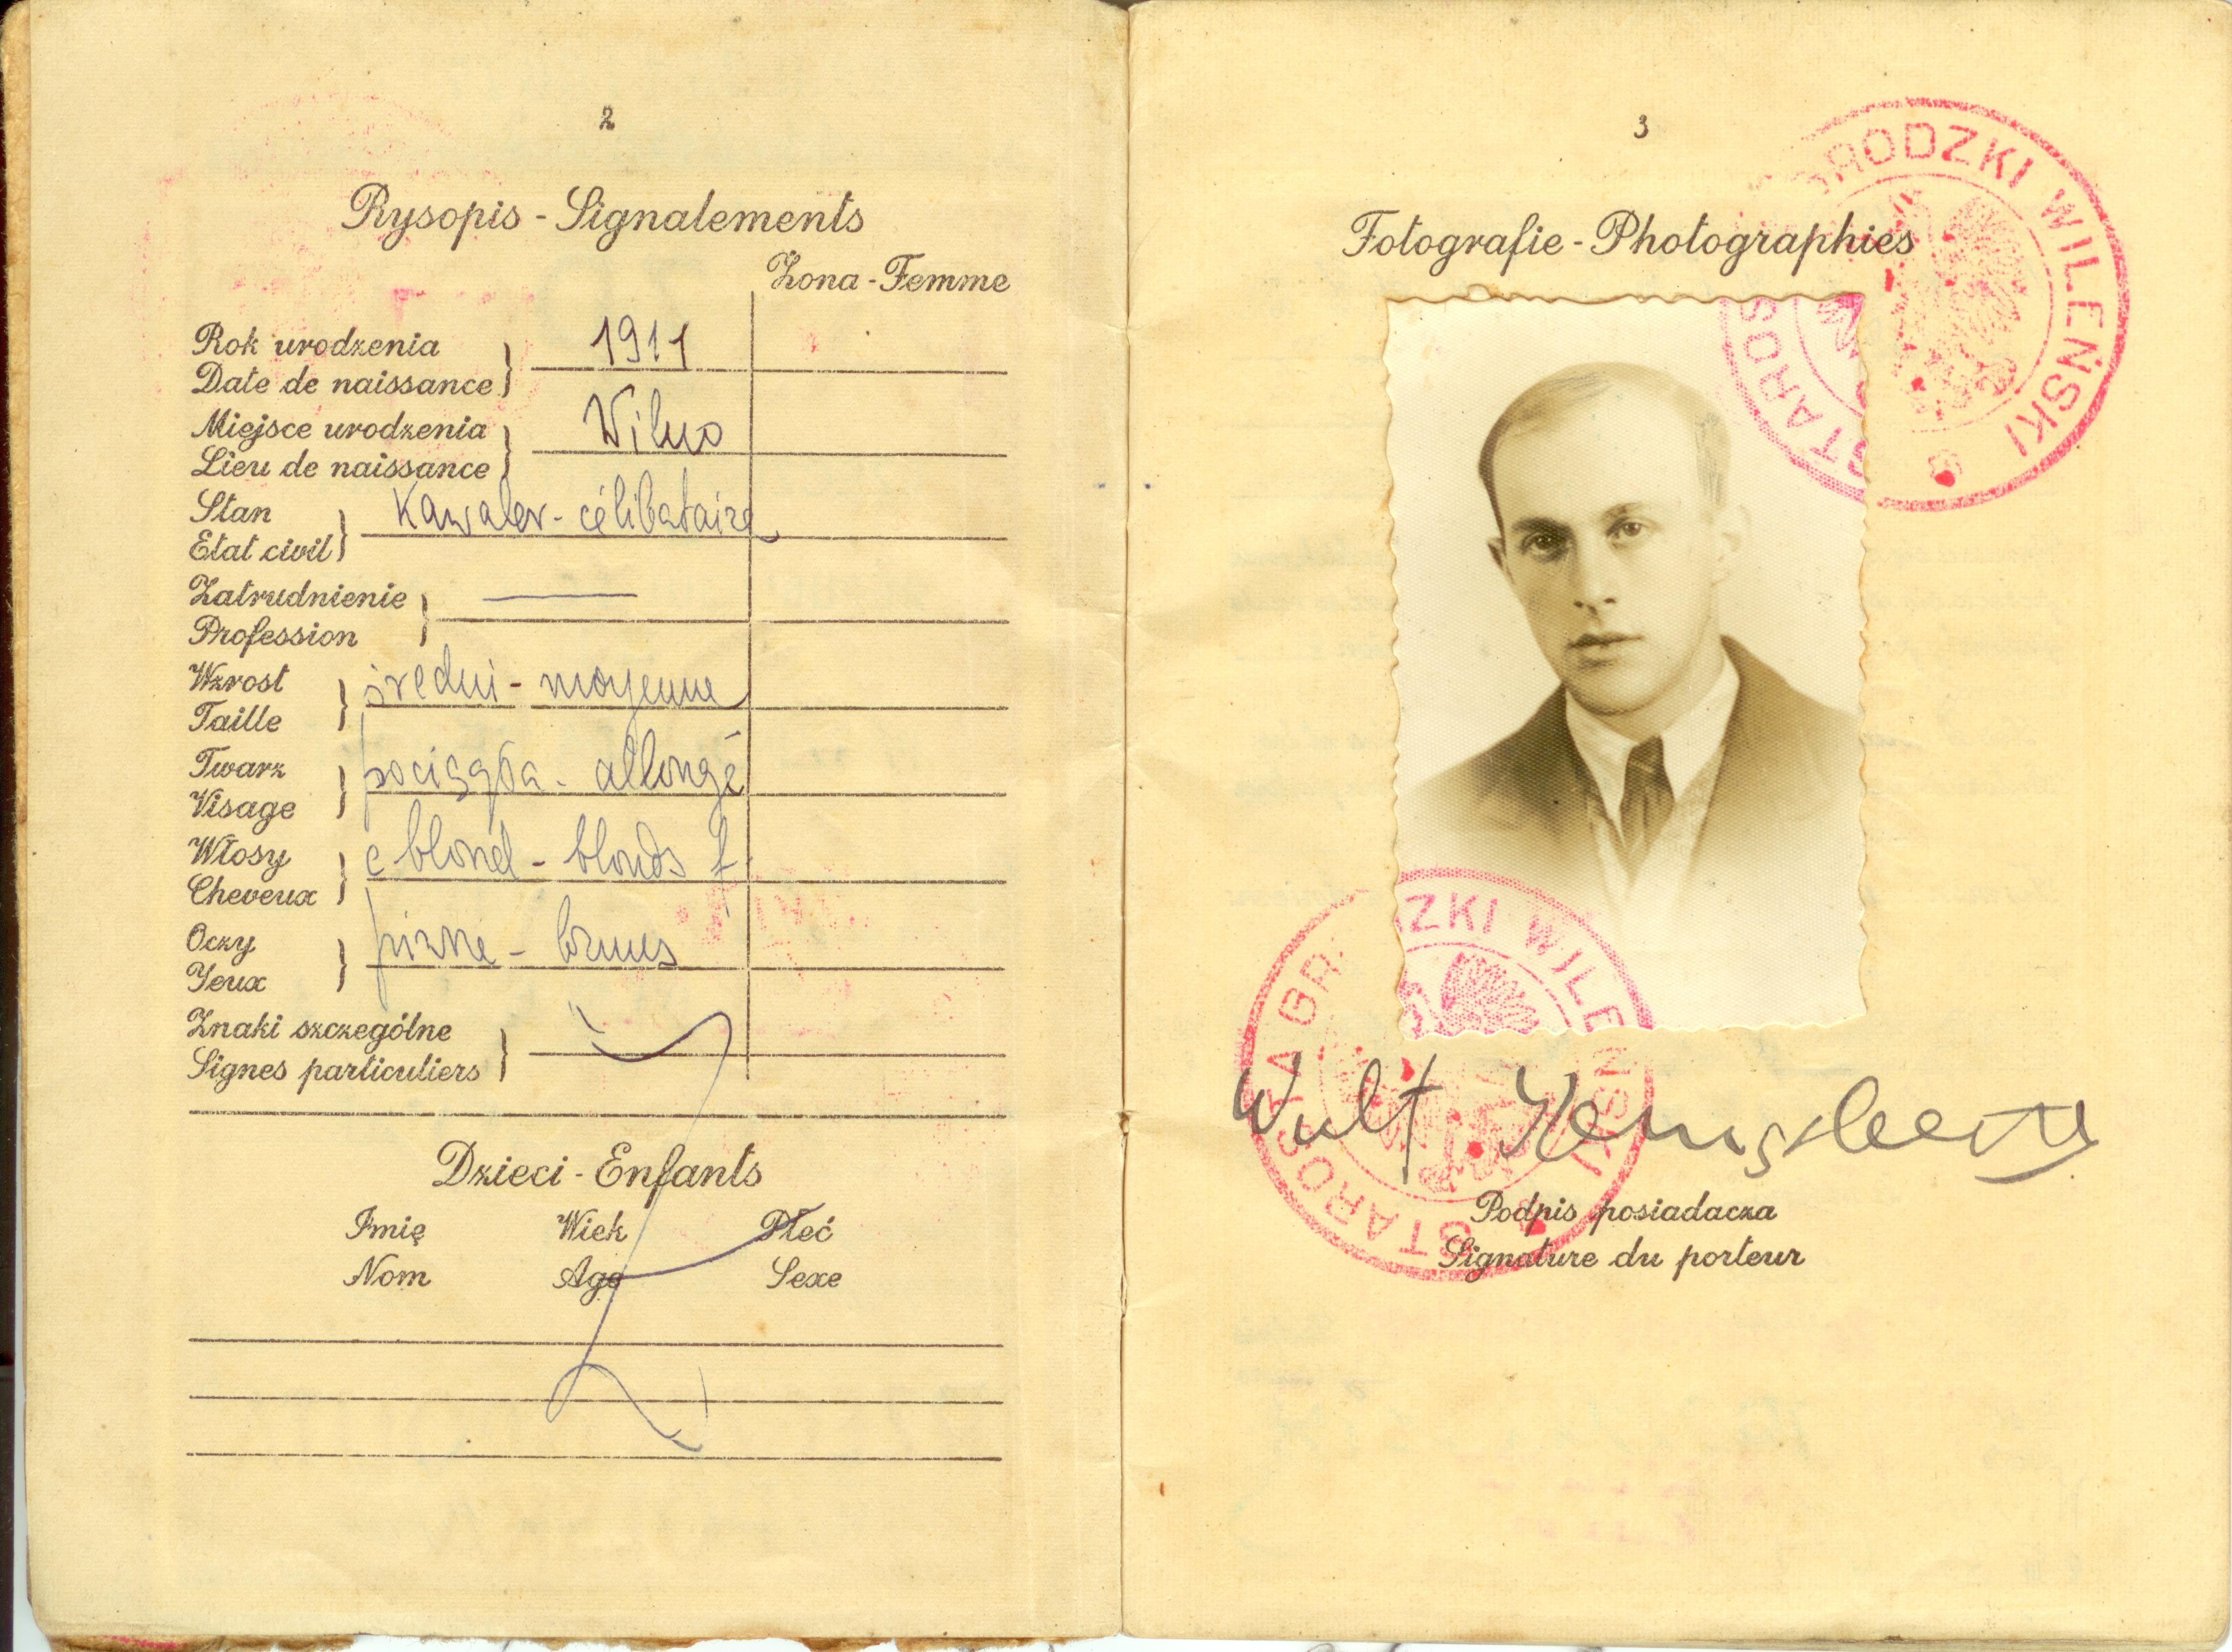 2
Rysopis - Signalements
Żona - Femme
Rok urodzenia
Date de naissance
1911
Miejsce urodzenia
Lieu de naissance
Wilno
Stan
Etat civil
Kawaler - célibataire
Zatrudnienie
Profession
Wzrost
Taille
średni - moyenne
Twarz
Visage
pociągła - allongé
Włosy
Cheveux
c blond - blonds f.
Oczy
Yeux
piwne - bruns
Znaki szczególne
Signes particuliers
Dzieci - Enfants
Imię Wiek Płeć
Nom Age Sexe
3
Fotografie - Photographies
STAROS RODZKI WILEŃSKI
STAROSTA GR. DZKI WILEŃSKI
Wulf
Podpis posiadacza
Signature du porteur